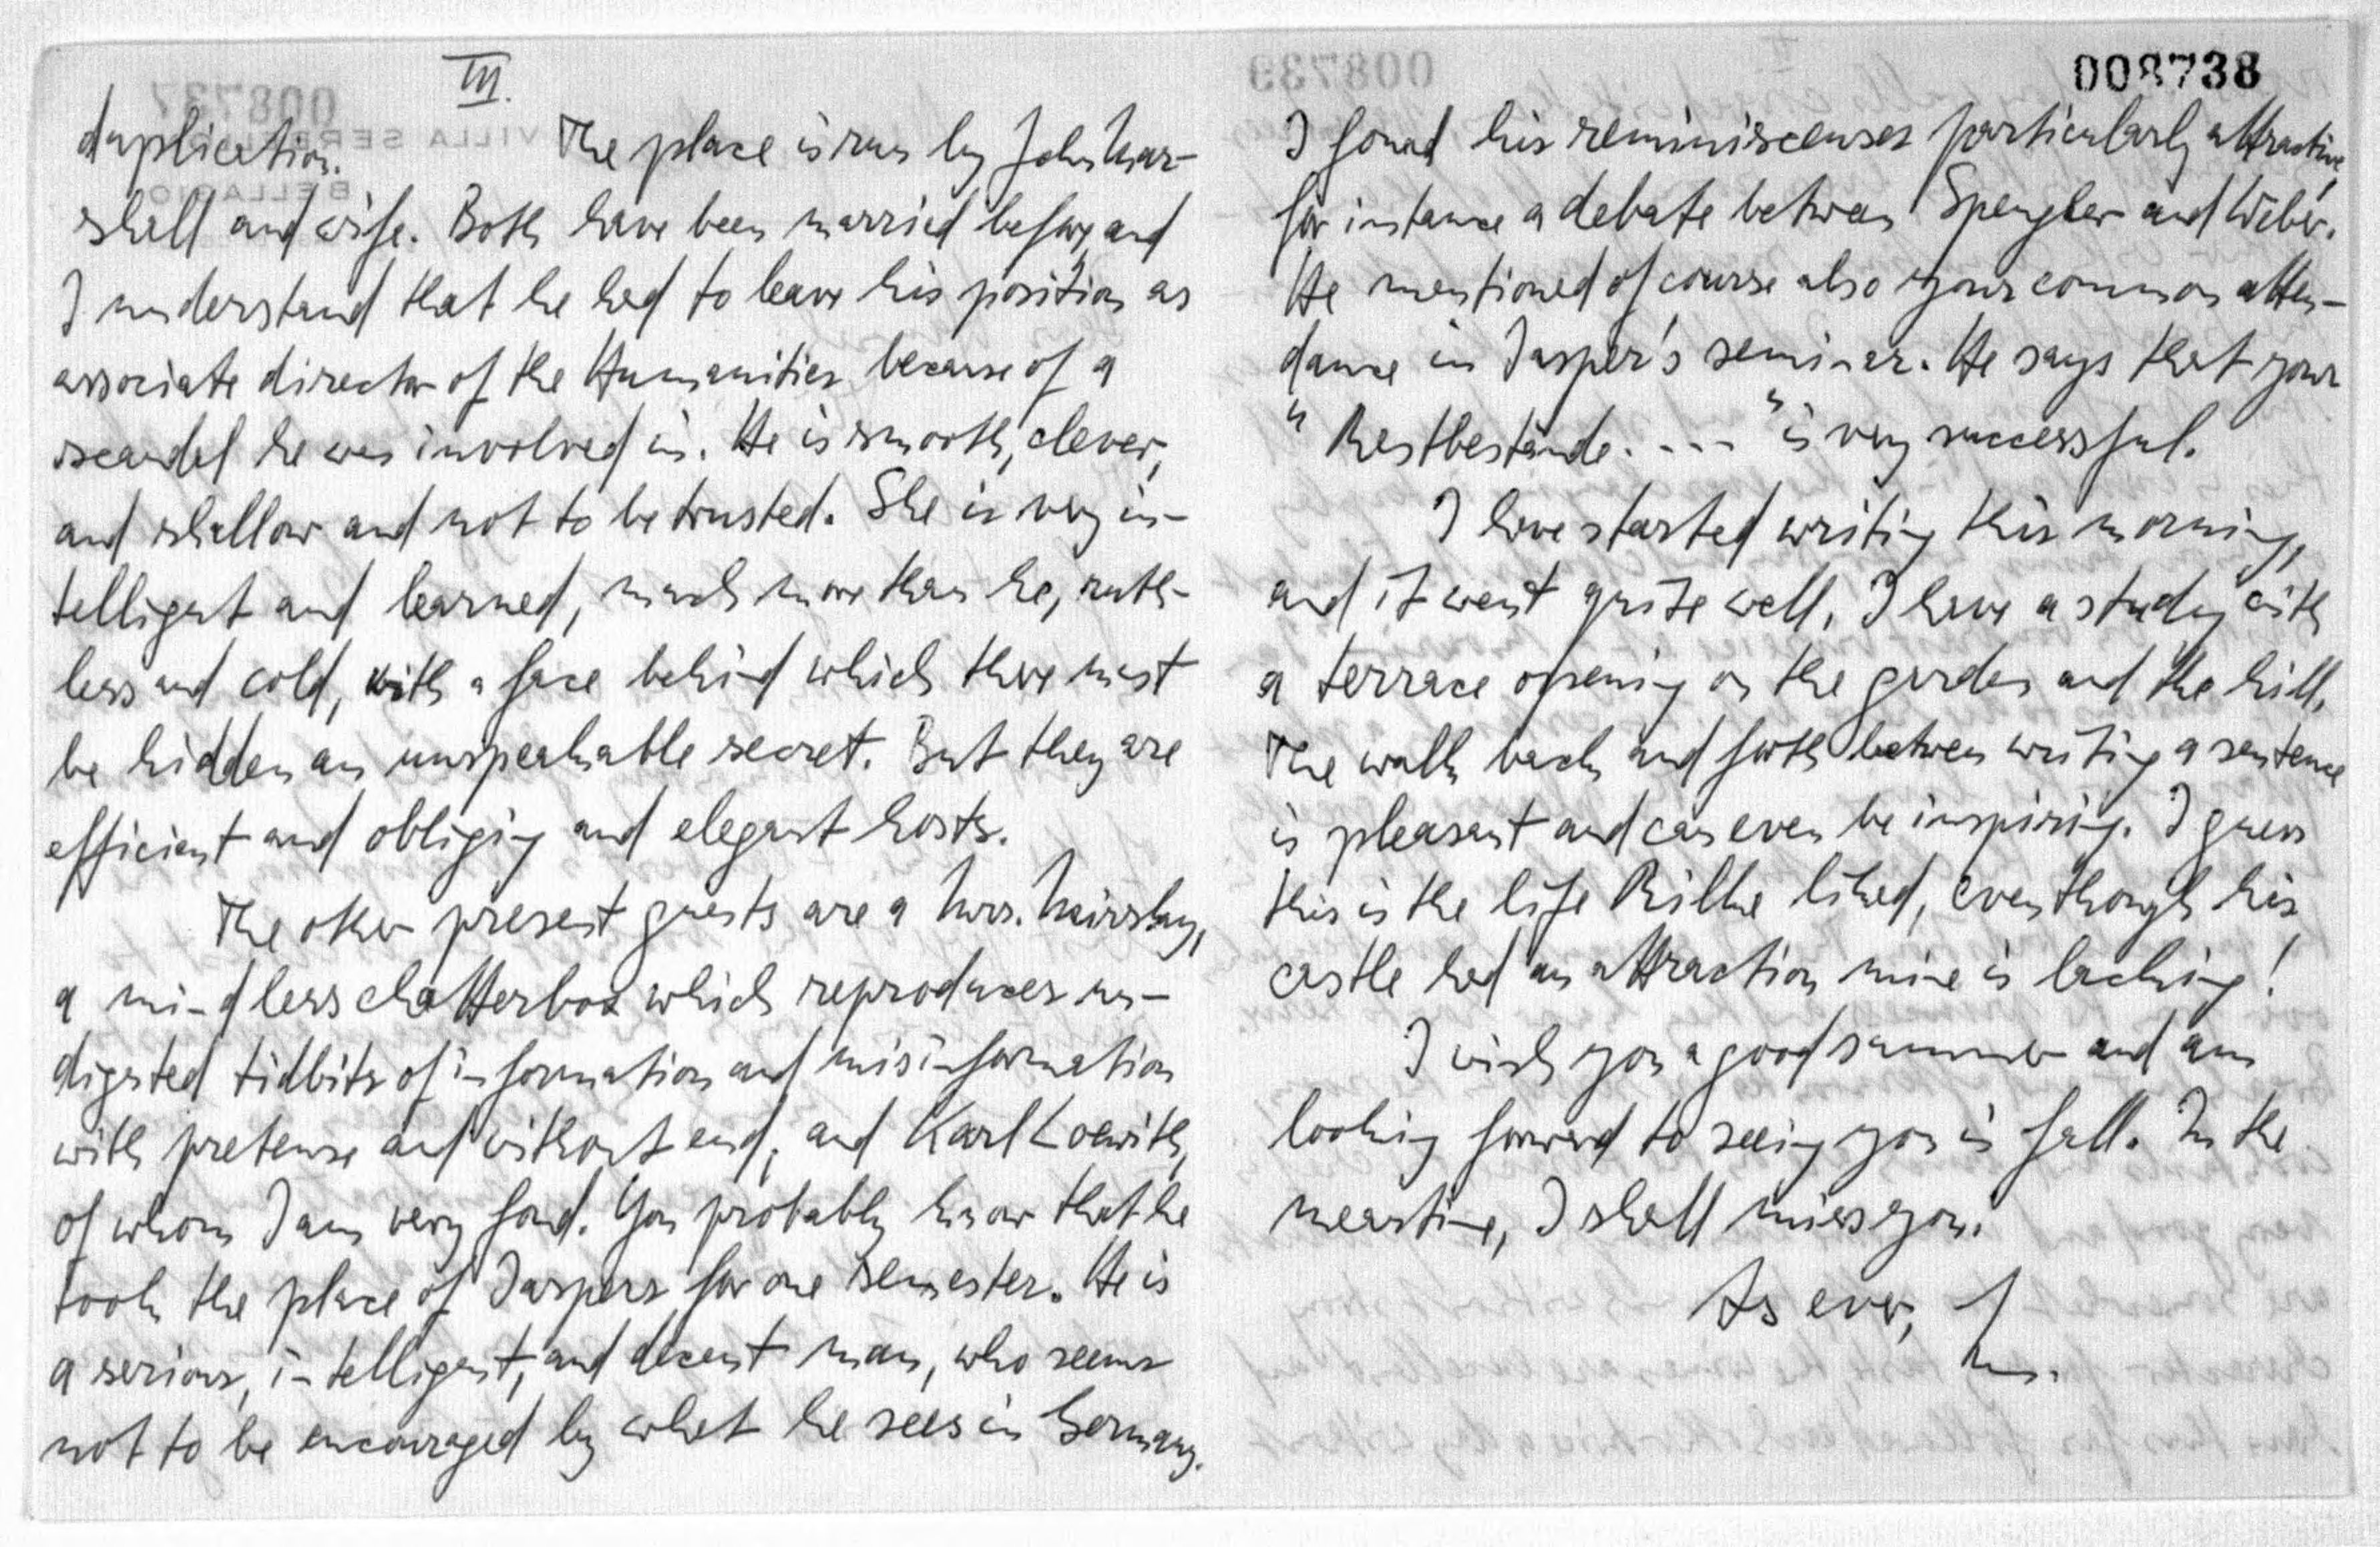 III.
duplication. The place is run by John Mar-
shall and wife. Both have been married before, and
I understand that he had to leave his position as
associate director of the Humanities because of a
scandal he was involved in. He is smooth, clever,
and shallow and not to be trusted. She is very in-
telligent and learned, much more than he, ruth-
less and cold, with a face behind which there must
be hidden an unspeakable secret. But they are
efficient and obliging and elegant hosts.
The other present guests are a Mrs.
a mindless chatterbox which reproduces un-
digested tidbits of information and misinformation
with pretense and without end; and Karl Loewith,
of whom I am very fond. You probably know that he
took the place of Jaspers for one semester. He is
a serious, intelligent, and decent man, who seems
not to be encouraged by what he sees in Germany.
008738
I found his reminiscenses particularly attractive,
for instance a debate between Spengler and Weber.
He mentioned of course also your common atten-
dance in Jasper's seminar. He says that your
"Restbestände...." is very successful.
I have started writing this morning,
and it went quite well. I have a study with
a terrace opening on the garden and the hill.
The walk back and forth between writing a sentence
is pleasant and can even be inspiring. I guess
this is the life Rilke liked, even though his
castle had an attraction mine is lacking!
I wish you a good summer and am
looking forward to seeing you in fall. In the
meantime, I shall miss you.
As ever,
008737
VILLA SERBELLONI
BELLAGIO
008739